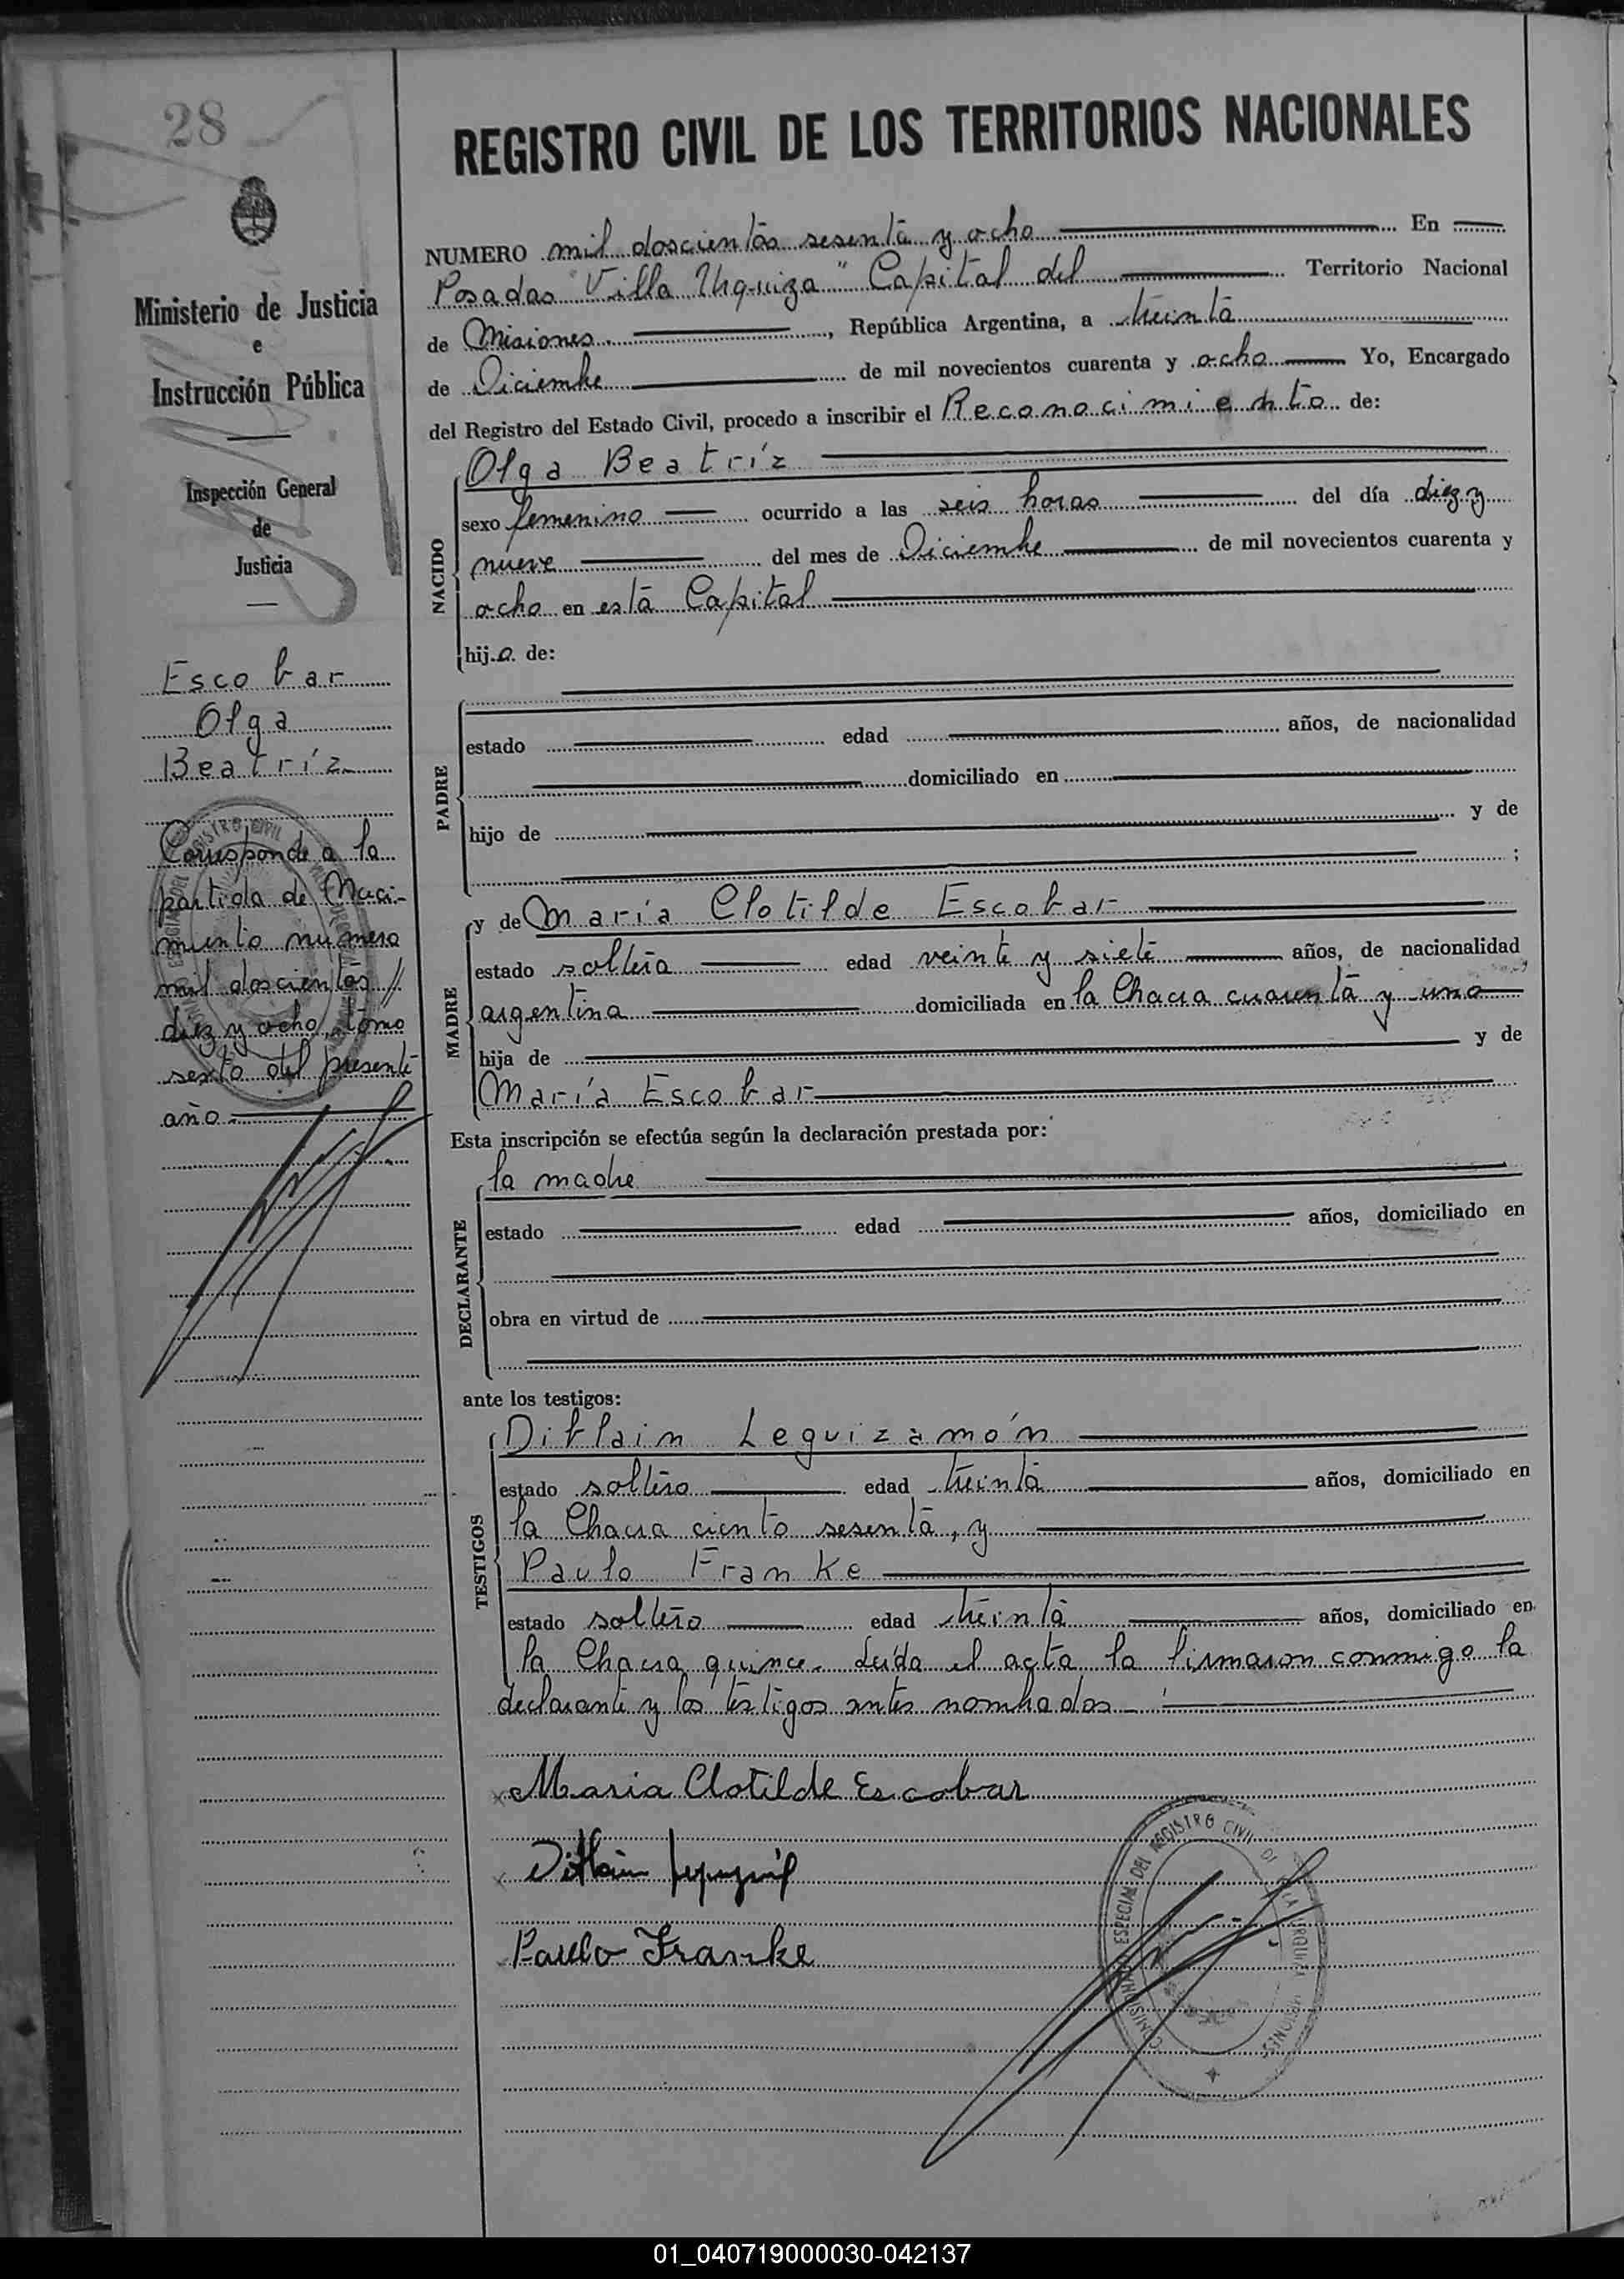 28
REGISTRO CIVIL DE LOS TERRITORIOS NACIONALES
Ministerio de Justicia
e
Instrucción Pública
Inspección General
de
Justicia
Escobar
Olga
Beatríz
Corresponde a la
partida de Naci-
miento numero
mil doscientos //
diez y ocho, tomo
sexto del presente
año.
NUMERO mil doscientos sesenta y ocho En
Posadas "Villa Urquiza" Capital del Territorio Nacional
de Misiones. , República Argentina, a treinta
de Diciembre de mil novecientos cuarenta y ocho Yo, Encargado
del Registro del Estado Civil, procedo a inscribir el Reconocimiento de:
NACIDO
Olga Beatríz
sexo femenino ocurrido a las seis horas del día diez y
nueve del mes de Diciembre de mil novecientos cuarenta y
ocho en esta Capital
hij.a. de:
PADRE
estado edad años, de nacionalidad
domiciliado en
hijo de y de
;
MADRE
y de María Clotilde Escobar
estado soltera edad veinte y siete años, de nacionalidad
argentina domiciliada en la Chacra cuarenta y uno
hija de y de
María Escobar
Esta inscripción se efectúa según la declaración prestada por:
DECLARANTE
la madre
estado edad años, domiciliado en
obra en virtud de
ante los testigos:
TESTIGOS
Ditlain Leguizamón
estado soltero edad treinta años, domiciliado en
la Chacra ciento sesenta, y
Paulo Franke
estado soltero edad treinta años, domiciliado en
la Chacra quince. Leída el acta la firmaron conmigo la
declarante y los testigos antes nombrados.
Maria Clotilde Escobar
Paulo Franke
COMISIONADO ESPECIAL DEL REGISTRO CIVIL DE VILLA URQUIZA MISIONES
01_040719000030-042137